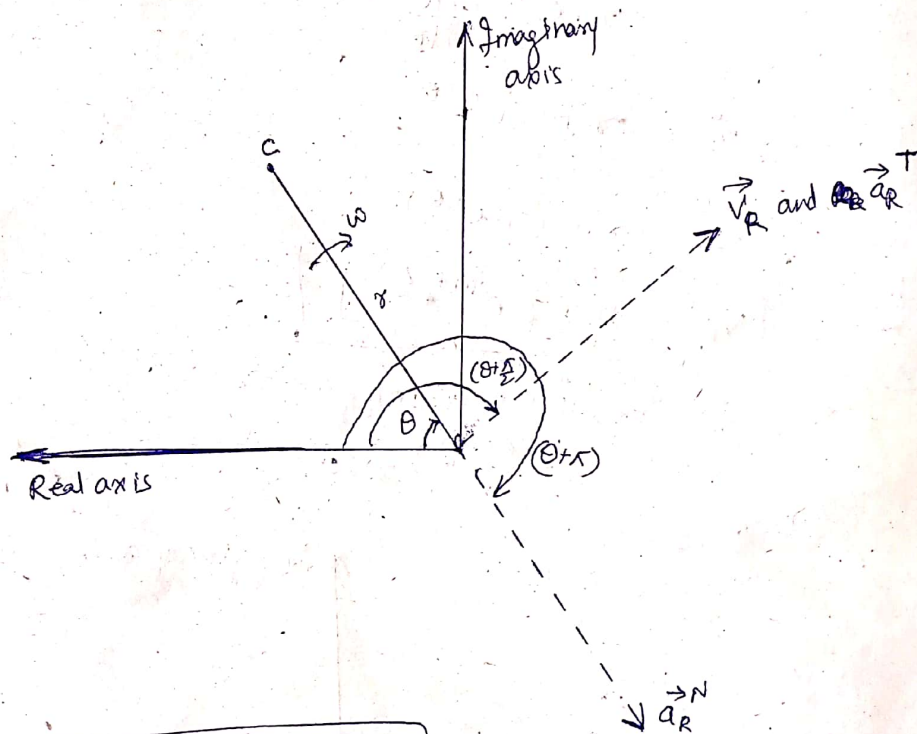 Imaginary
axis
C
ω
r
V⃗_R and a⃗_R^T
θ
(θ+π/2)
(θ+π)
Real axis
a⃗_R^N